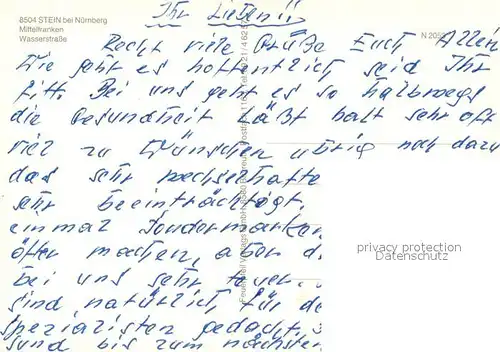 8504 STEIN bei Nürnberg
Mittelfranken
Wasserstraße
Ihr Lieben!!
Recht viele Grüße Euch Allen
Wie geht es hoffentlich seid Ihr
fitt. Bei uns geht es so halbwegs
die Gesundheit läßt halt sehr oft
viel zu Wünschen übrig noch dazu
das sehr wechselhafte
sehr beeinträchtigt.
einmal Sondermarken
öfter machen, aber d.
bei uns sehr teuer.
sind natürlich für de
spezialisten gedacht.
sund bis zum nächsten
privacy protection